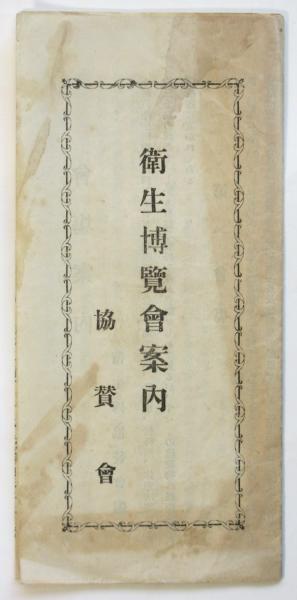 衛生博覽會案內
協賛會